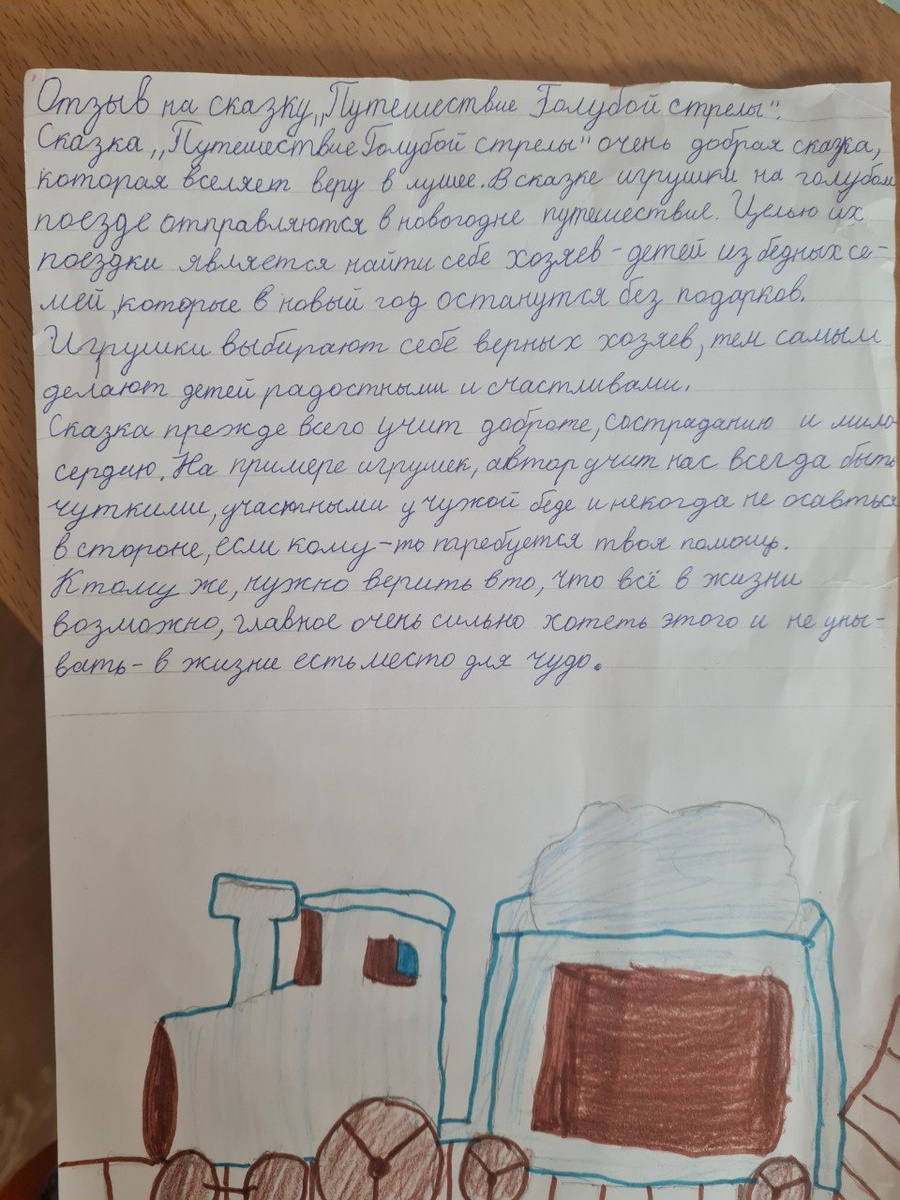 Отзыв на сказку „Путешествие Голубой стрелы".
Сказка „Путешествие Голубой стрелы" очень добрая сказка,
которая вселяет веру в лушее. В сказке игрушки на голубом
поезде отправляются в новогодне путешествие. Целью их
поездки является найти себе хозяев - детей из бедных се-
мей, которые в новый год останутся без подарков.
Игрушки выбирают себе верных хозяев, тем самым
делают детей радостными и счастливами.
Сказка прежде всего учит доброте, состраданию и мило
сердию. На примере игрушек, автор учит нас всегда быть
чуткими, участными у чужой беде и некогда не осавться
в стороне, если кому-то требуется твоя помощь.
К тому же, нужно верить в то, что всё в жизни
возможно, главное очень сильно хотеть этого и не уны-
вать - в жизни есть место для чудо.